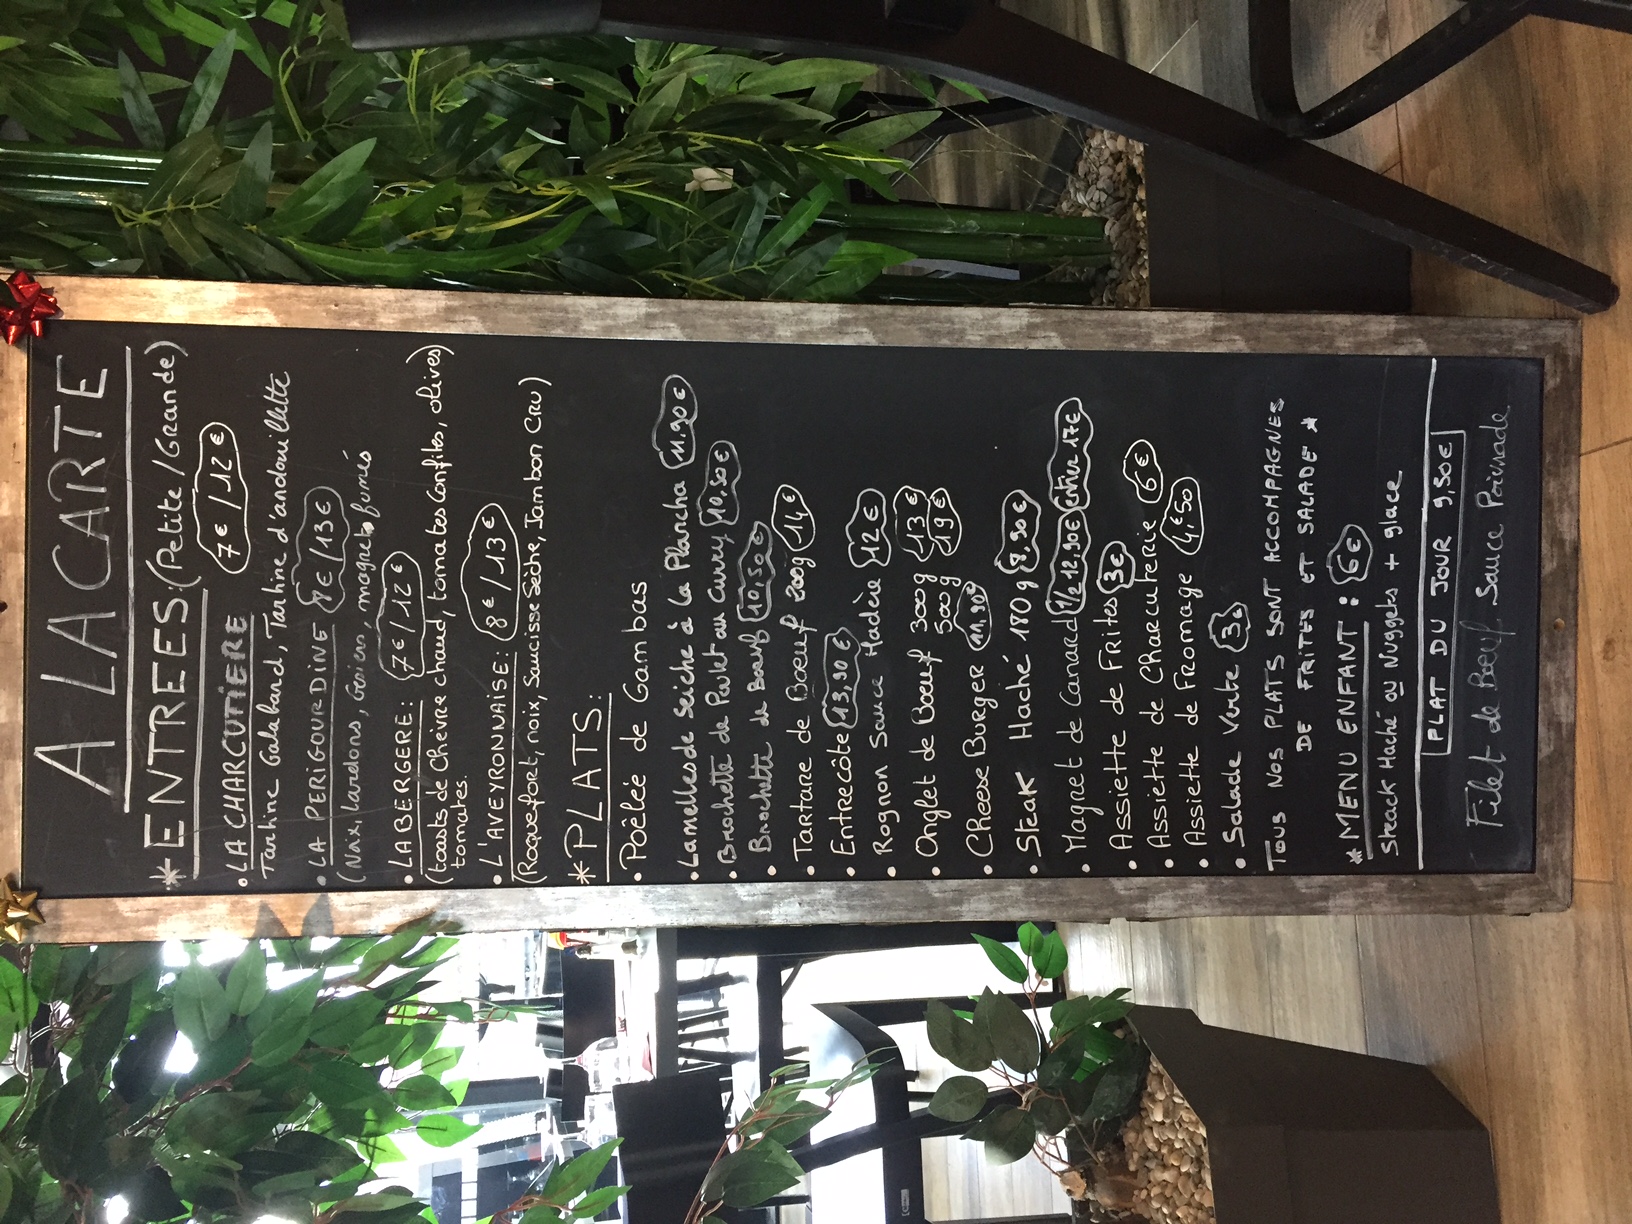 A LA CARTE
*ENTREES:(Petite/Grande)
7€/12€
•LA CHARCUTIERE
Tartine Galabard, Tartine d'andouillette
•LA PERIGOURDINE 8€/13€
(Noix, lardons, Gésiers, magrets fumés
•LA BERGERE: 7€/12€
(toasts de Chèvre chaud, tomates confites, olives)
tomates.
•L'AVEYRONNAISE: 8€/13€
(Roquefort, noix, Saucisse Sèche, Jambon CRU)
*PLATS:
•Poêlée de Gambas
•Lamelles de Seiche à la Plancha 11.90€
•Brochette de Poulet au curry 10,50€
•Brochette de Boeuf 10,50€
•Tartare de Boeuf 200g 14€
•Entrecôte 13,90€
•Rognon Sauce Madère 12€
•Onglet de Boeuf 300g 13€
500g 19€
•Cheese Burger 11.90€
•Steak Haché 180g 8.90€
•Magret de Canard 1/2 12.90€ Entier 17€
•Assiette de Frites 3€
•Assiette de Charcuterie 6€
•Assiette de Fromage 4,€50
•Salade Verte 3€
TOUS NOS PLATS SONT ACCOMPAGNES
DE FRITES ET SALADE *
*MENU ENFANT: 6€
Steack Haché ou Nuggets + glace
PLAT DU JOUR 9,50€
Filet de Boeuf Sauce Poivrade